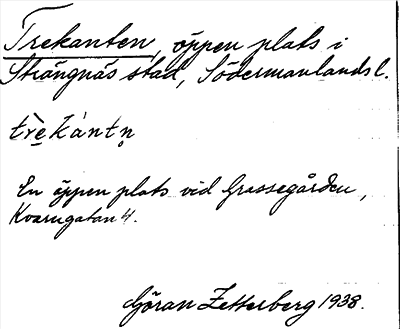 Trekanten, öppen plats i
Strängnäs stad, Södermanlands l.
trèkántn̥
En öppen plats vid Grassegården,
Kvarngatan 4.
Göran Zetterberg 1938.